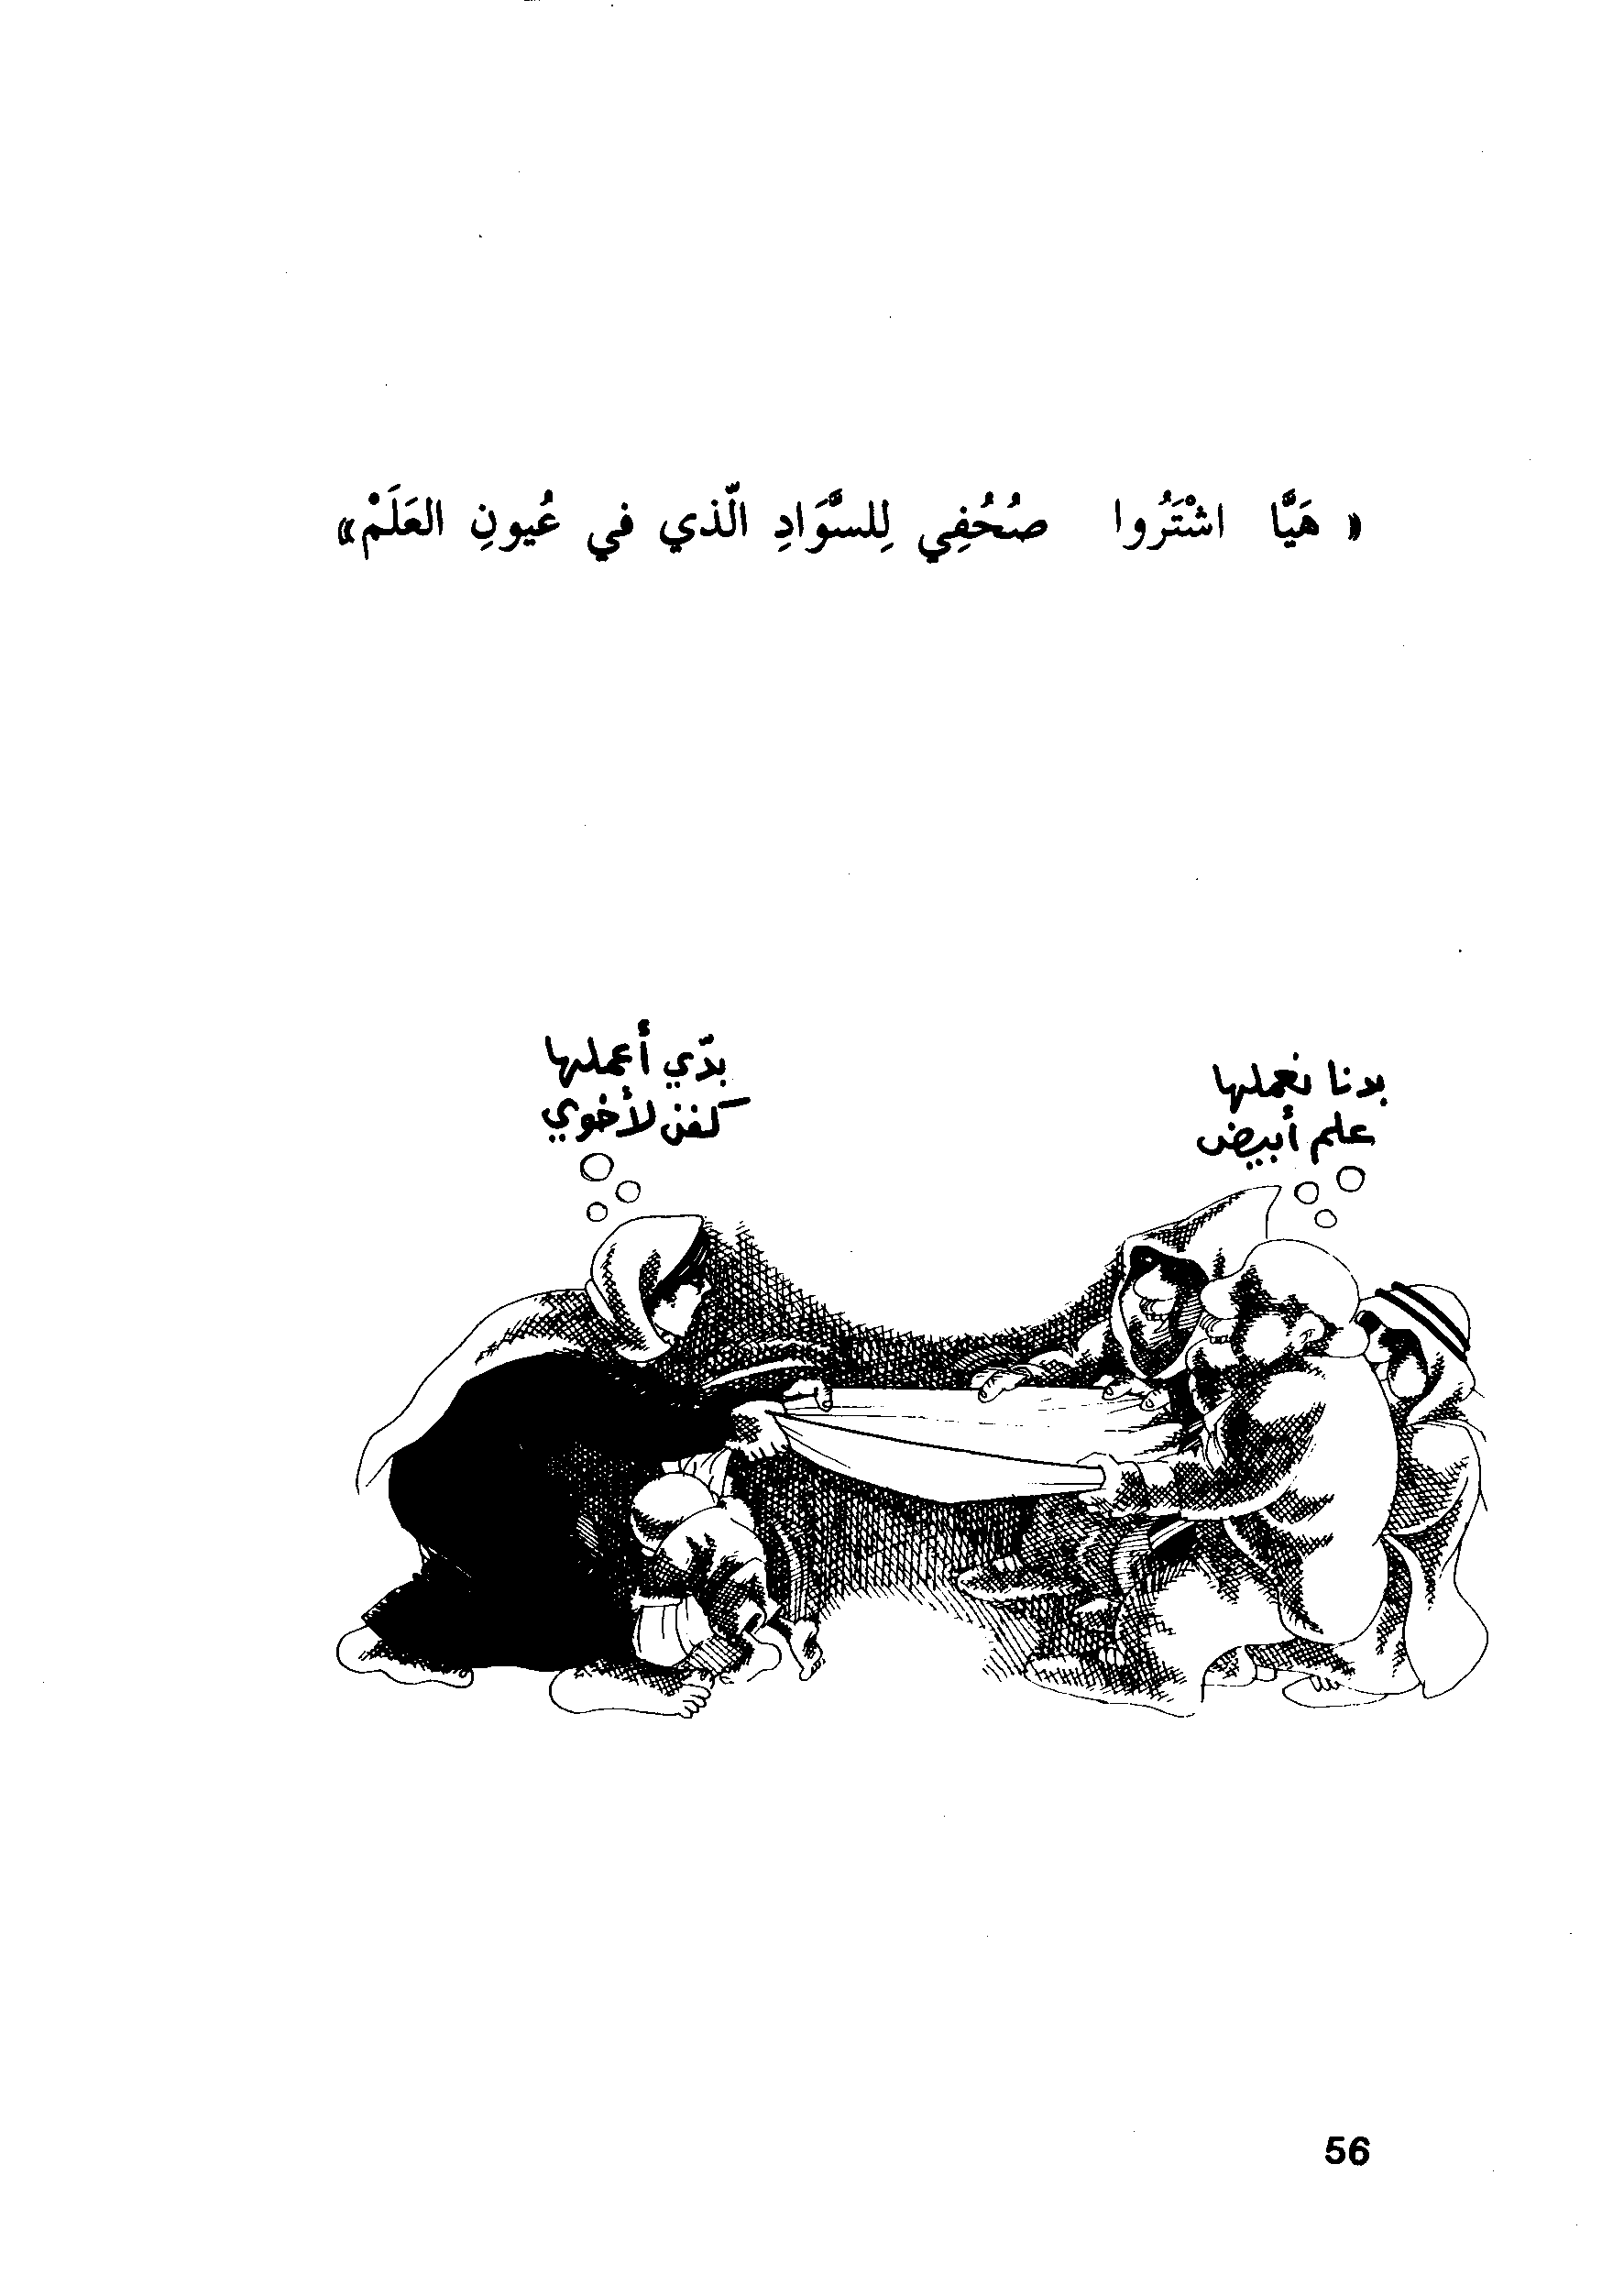 « هَيَّا اشْتَرُوا صُحُفِي لِلسَّوَادِ الّذي في عُيونِ العَلَمْ»
بدّي أعملها
كفن لأخوي
بدنا نعملها
علم أبيض
56